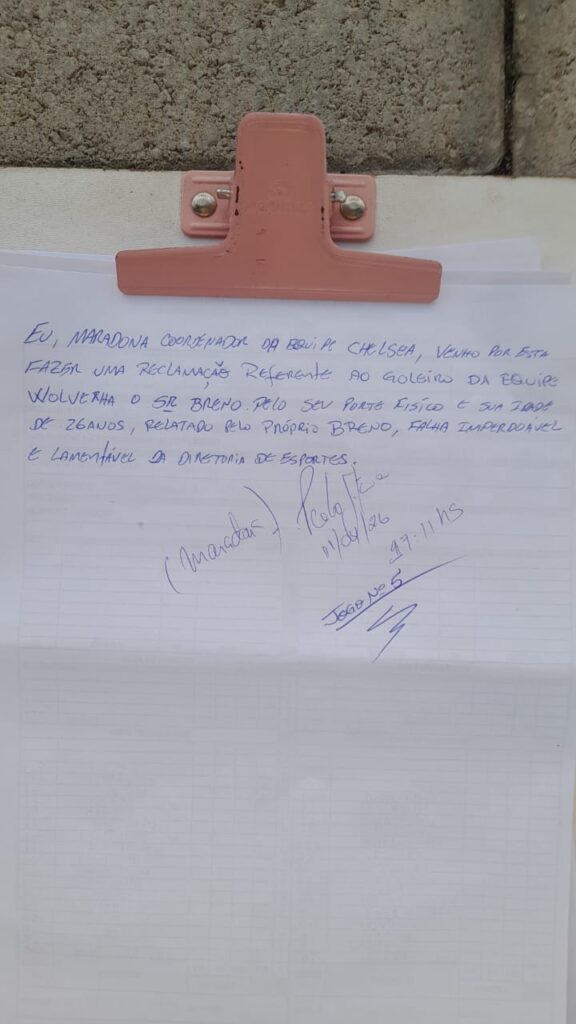 EU, MARADONA COORDENADOR DA EQUIPE CHELSEA, VENHO POR ESTA
FAZER UMA RECLAMAÇÃO REFERENTE AO GOLEIRO DA EQUIPE
WOLVERHA O SR BRENO. PELO SEU PORTE FISÍCO E SUA IDADE
DE 26 ANOS, RELATADO PELO PRÓPRIO BRENO, FALHA IMPERDOAVEL
E LAMENTÁVEL DA DIRETORIA DE ESPORTES.
(Maradona)
17:11 HS
JOGO Nº 5